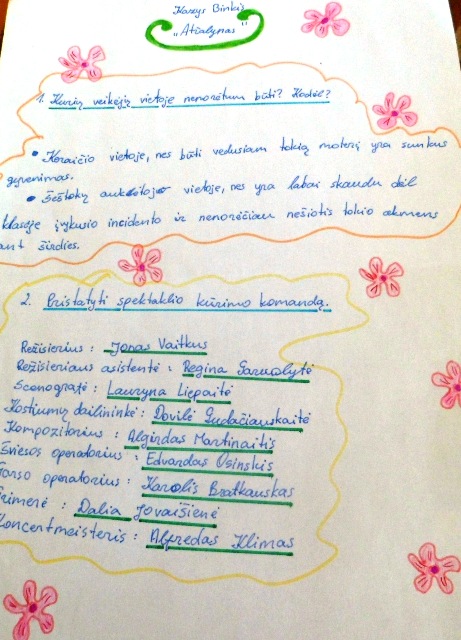 Kazys Binkis
„Atžalynas"
1. Kurių veikėjų vietoje nenorėtum būti? Kodėl?
• Keraičio vietoje, nes būti vedusiam tokią moterį yra sunkus
gyvenimas.
• Šeštokų auklėtojos vietoje, nes yra labai skaudu dėl
klasėje įvykusio incidento ir nenorėčiau nešiotis tokio akmens
ant širdies.
2. Pristatyti spektaklio kūrimo komandą.
Režisierius: Jonas Vaitkus
Režisieriaus asistentė: Regina Garuolytė
Scenografė: Lauryna Liepaitė
Kostiumų dailininkė: Dovilė Gudačiauskaitė
Kompozitorius: Algirdas Martinaitis
Šviesos operatorius: Edvardas Osinskis
Garso operatorius: Karolis Bratkauskas
Grimerė: Dalia Jovaišienė
Koncertmeisteris: Alfredas Klimas